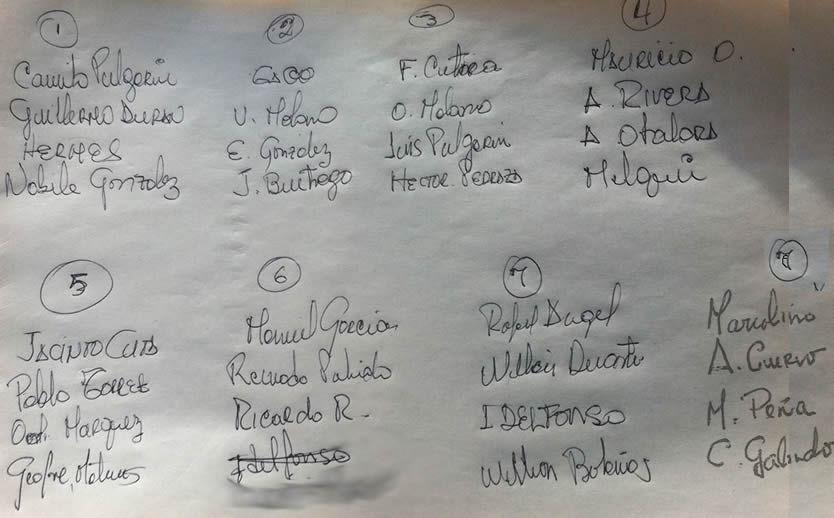 1
Camilo Pulgarin
Guillermo Duran
HERMES
Nobile Gonzolez
2
GSCO
V. Molano
E. Gonzolez
J. Buitrago
3
F. Cuttora
O. Molano
Luis Pulgarin
HECTOR. PEDRAZA
4
MAURICIO O.
A. RIVERA
A Otalora
Melqui
5
JACINTO
Pablo Torres
Marquez
6
Manuel Garcia
Ricardo R.
Idelfonso
7
Rafael Angel
William Duarte
IDELFONSO
William Bolaños
8
Marcolino
A. Cuervo
M. Peña
C. Galindo